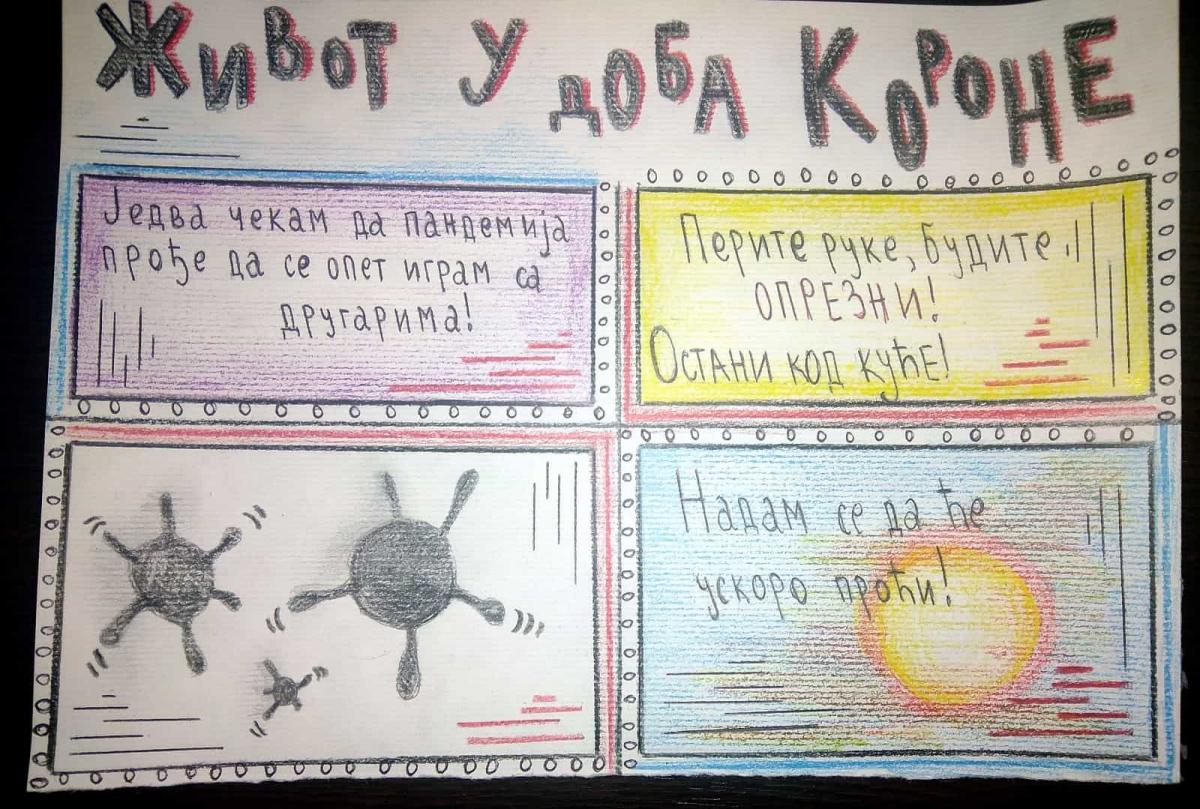 ЖИВОТ У ДОБА КОРОНЕ
Једва чекам да пандемија
прође да се опет играм са
другарима!
Перите руке, будите
ОПРЕЗНИ!
Остани код куће!
Надам се да ће
ускоро проћи!